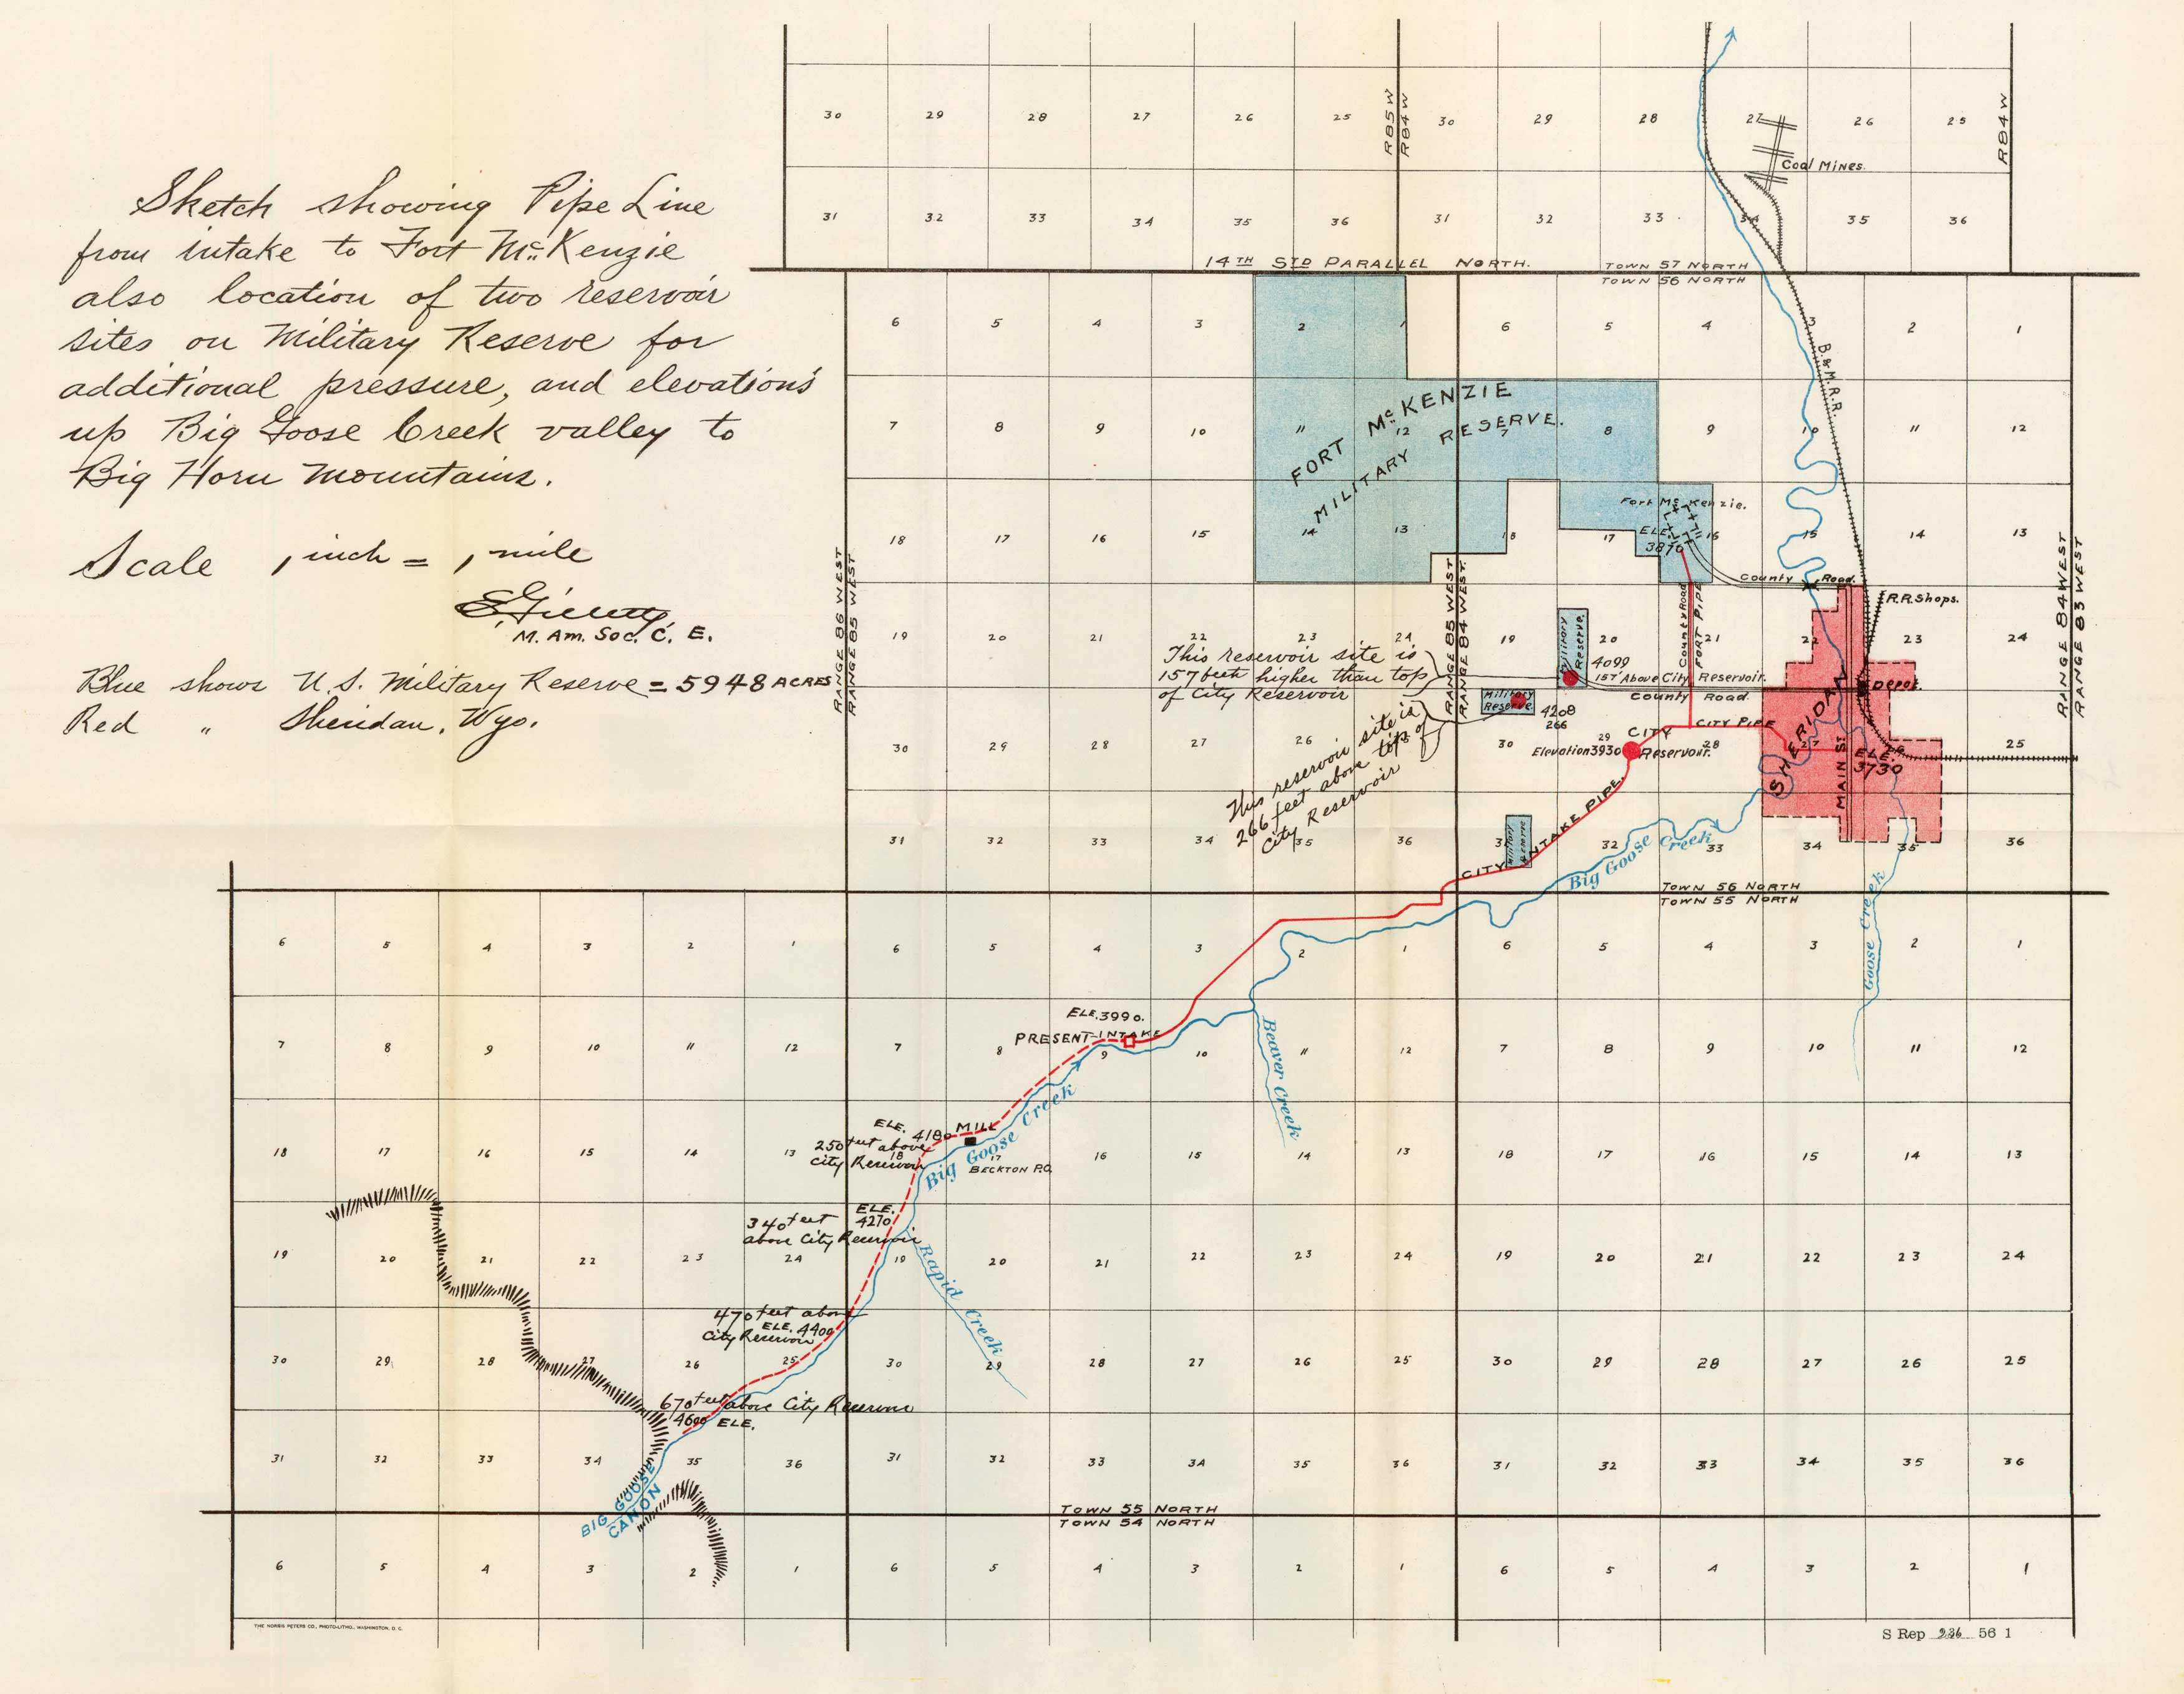 Sketch showing Pipe Line
from intake to Fort McKenzie
also location of two reservoir
sites on Military Reserve for
additional pressure, and elevations
up Big Goose Creek valley to
Big Horn Mountains.
Scale 1 inch = 1 mile
M. Am. Soc. C. E.
Blue shows U.S. Military Reserve = 5948 ACRES
Red " Sheridan, Wyo.
R85W
R84W
R84W
30 29 28 27 26 25 30 29 28 27 26 25
Coal Mines.
31 32 33 34 35 36 31 32 33 34 35 36
14TH STD PARALLEL NORTH.
TOWN 57 NORTH
TOWN 56 NORTH
6 5 4 3 2 1 6 5 4 3 2 1
B. & M. R.R.
FORT McKENZIE
MILITARY RESERVE.
7 8 9 10 11 12 7 8 9 10 11 12
Fort McKenzie.
ELE.
3870
18 17 16 15 14 13 18 17 16 15 14 13
RANGE 86 WEST
RANGE 85 WEST
RANGE 85 WEST
RANGE 84 WEST
RANGE 84 WEST
RANGE 83 WEST
County Road.
R.R. Shops.
County Road
FORT PIPE
19 20 21 22 23 24 19 20 21 22 23 24
Military
Reserve.
This reservoir site is
157 feet higher than top
of City Reservoir
4099
157' Above City Reservoir.
County Road.
Depot.
Military
Reserve
4208
266
This reservoir site is
266 feet above top of
City Reservoir
CITY PIPE
SHERIDAN
MAIN ST
ELE.
3730
30 29 28 27 26 25 30 29 28 27 25
CITY
Elevation 3930 Reservoir.
CITY INTAKE PIPE.
Military
Reserve
31 32 33 34 35 36 31 32 33 34 35 36
Big Goose Creek
TOWN 56 NORTH
TOWN 55 NORTH
Goose Creek
6 5 4 3 2 1 6 5 4 3 2 1 6 5 4 3 2 1
ELE. 3990.
PRESENT INTAKE
7 8 9 10 11 12 7 8 9 10 11 12 7 8 9 10 11 12
Beaver Creek
Big Goose Creek
ELE. 4180 MILL
250 feet above
City Reservoir
BECKTON P.O.
18 17 16 15 14 13 18 17 16 15 14 13 18 17 16 15 14 13
ELE.
4270
340 feet
above City Reservoir
19 20 21 22 23 24 19 20 21 22 23 24 19 20 21 22 23 24
Rapid Creek
470 feet above
ELE. 4400
City Reservoir
30 29 28 27 26 25 30 29 28 27 26 25 30 29 28 27 26 25
670 feet above City Reservoir
4600 ELE.
31 32 33 34 35 36 31 32 33 34 35 36 31 32 33 34 35 36
BIG GOOSE
CANON
TOWN 55 NORTH
TOWN 54 NORTH
6 5 4 3 2 1 6 5 4 3 2 1 6 5 4 3 2 1
THE NORRIS PETERS CO., PHOTO-LITHO., WASHINGTON, D. C.
S Rep 236 56 1